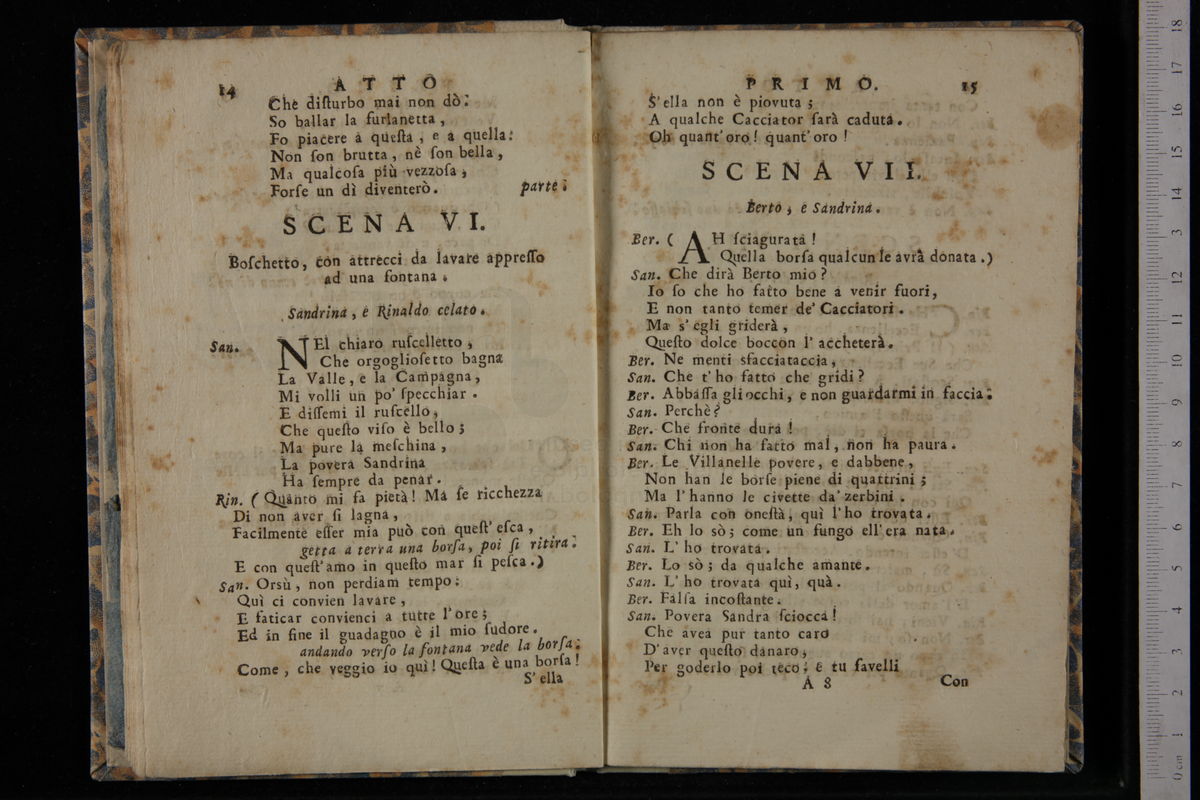 14 ATTO
Che diſturbo mai non dò:
So ballar la furlanetta,
Fo piacere a queſta, e a quella:
Non ſon brutta, nè ſon bella,
Ma qualcoſa più vezzoſa,
Forſe un dì diventerò. parte.
SCENA VI.
Boſchetto, con attrecci da lavare appreſſo
ad una fontana.
Sandrina, e Rinaldo celato.
San. NEl chiaro ruſcelletto,
Che orgoglioſetto bagna
La Valle, e la Campagna,
Mi volli un po' ſpecchiar.
E diſſemi il ruſcello,
Che queſto viſo è bello;
Ma pure la meſchina,
La povera Sandrina
Ha ſempre da penar.
Rin. (Quanto mi fa pietà! Ma ſe ricchezza
Di non aver ſi lagna,
Facilmente eſſer mia può con queſt' eſca,
getta a terra una borſa, poi ſi ritira.
E con queſt' amo in queſto mar ſi peſca.)
San. Orsù, non perdiam tempo:
Quì ci convien lavare,
E faticar convienci a tutte l'ore;
Ed in fine il guadagno è il mio ſudore.
andando verſo la fontana vede la borſa.
Come, che veggio io quì! Queſta è una borſa!
S' ella
PRIMO. 15
S'ella non è piovuta;
A qualche Cacciator ſarà caduta.
Oh quant' oro! quant' oro!
SCENA VII.
Berto, e Sandrina.
Ber. (AH ſciagurata!
Quella borſa qualcun le avrà donata.)
San. Che dirà Berto mio?
Io ſo che ho fatto bene a venir fuori,
E non tanto temer de' Cacciatori.
Ma s' egli griderà,
Queſto dolce boccon l' accheterà.
Ber. Ne menti sfacciataccia,
San. Che t' ho fatto che gridi?
Ber. Abbaſſa gli occhi, e non guardarmi in faccia.
San. Perchè?
Ber. Che fronte dura!
San. Chi non ha fatto mal, non ha paura.
Ber. Le Villanelle povere, e dabbene,
Non han le borſe piene di quattrini;
Ma l' hanno le civette da' zerbini.
San. Parla con oneſtà, quì l'ho trovata.
Ber. Eh lo sò; come un fungo ell' era nata.
San. L' ho trovata.
Ber. Lo sò; da qualche amante.
San. L' ho trovata quì, quà.
Ber. Falſa incoſtante.
San. Povera Sandra ſciocca!
Che avea pur tanto caro
D' aver queſto danaro,
Per goderlo poi teco: e tu favelli
A 8 Con
0 cm 1 2 3 4 5 6 7 8 9 10 11 12 13 14 15 16 17 18